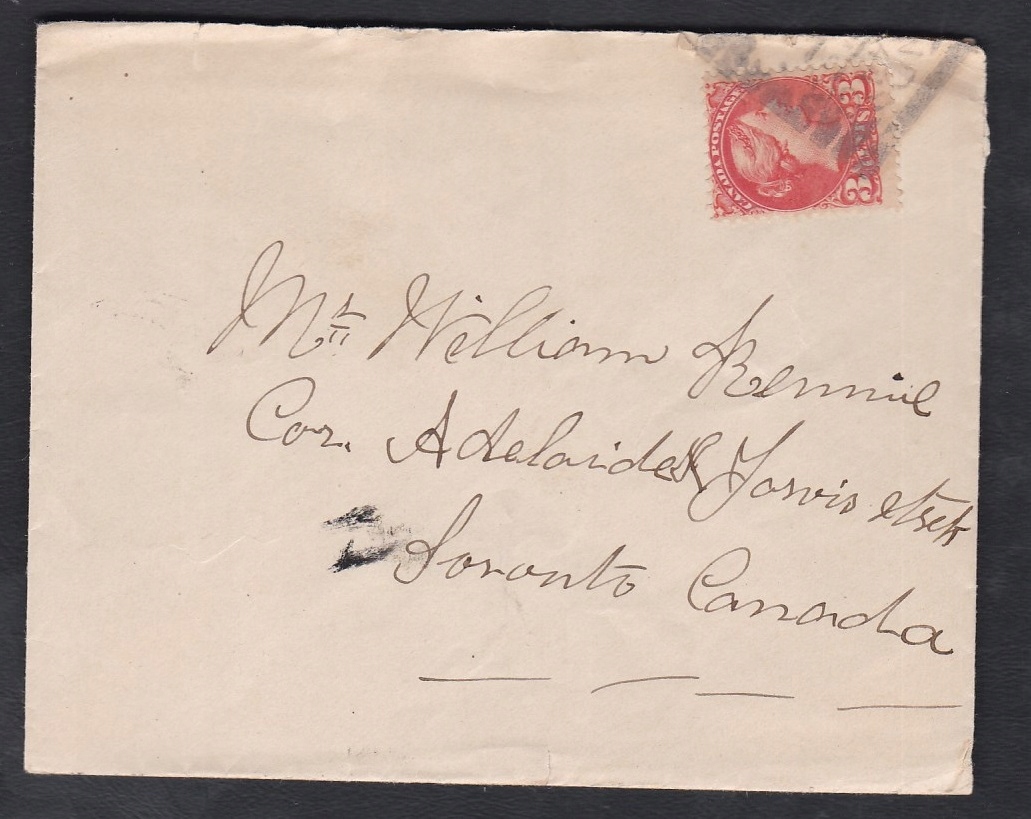 CANADA POSTAGE
3 3
Mr. William Rennie
Cor. Adelaide & Jarvis streets
Toronto Canada